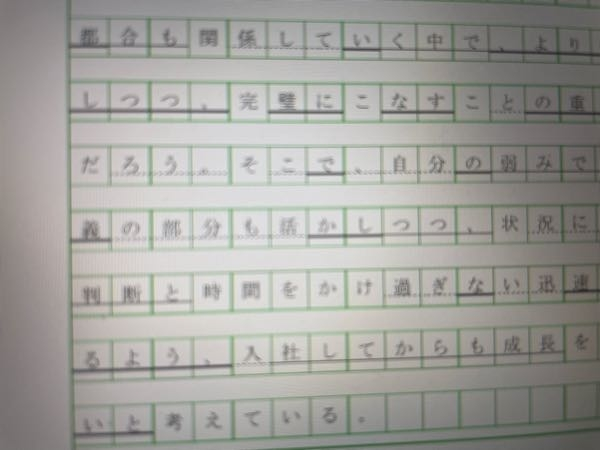 都合も関係していく中で、より
しつつ、完璧にこなすことの重
だろう。そこで、自分の弱みで
義の部分も活かしつつ、状況に
判断と時間をかけ過ぎない迅速
るよう、入社してからも成長を
いと考えている。